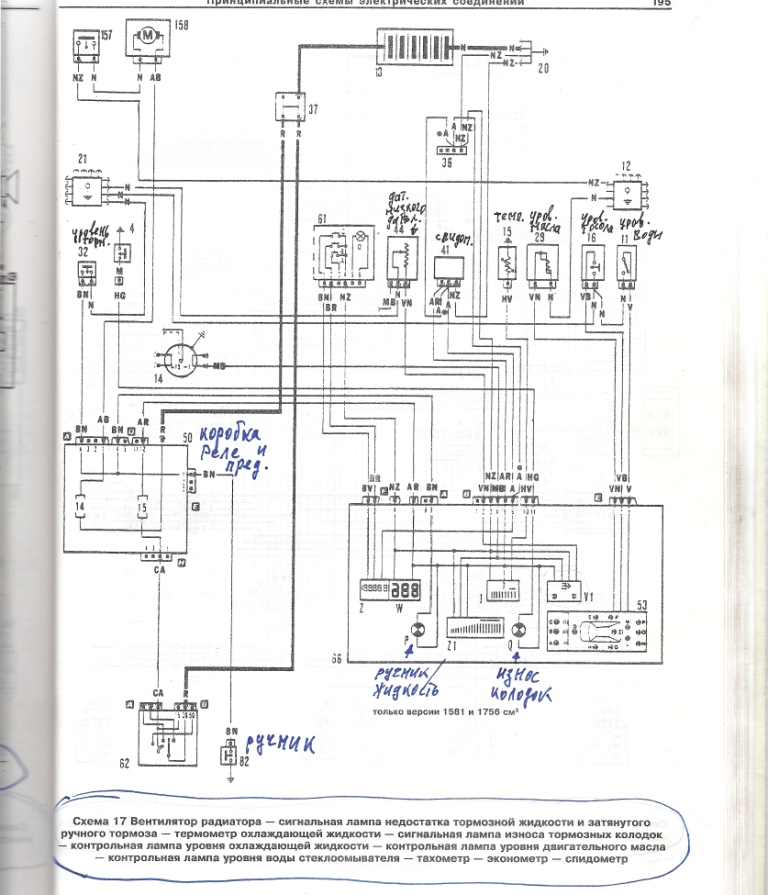 Принципиальные схемы электрических соединений 195
157
158
M
NZ N N AB
13
N N
NZ NZ
20
37
R R
A A NZ
NZ
36
21
N
N
N
12
NZ
N
уровень торм.
32
4
M
BN
N
HG
61
BN NZ
BR
дат. низкого давл.
44
MB N VN
41
AR NZ
A
темп.
15
HV
уров. масла
29
VN N
16
VB
N
уров. воды
11
N V
14
MB
BN AB BN AR R
50
коробка реле и пред.
BN
14
15
CA
BR
BV NZ AR BN
NZ AR A HG
VN MB A HV
VB
VN V
Z W
J
V1
53
P
Z1
Q
66
ручник жидкость
износ колодок
только версии 1581 и 1756 см³
CA R
62
BN
82
ручник
Схема 17 Вентилятор радиатора — сигнальная лампа недостатка тормозной жидкости и затянутого
ручного тормоза — термометр охлаждающей жидкости — сигнальная лампа износа тормозных колодок
— контрольная лампа уровня охлаждающей жидкости — контрольная лампа уровня двигательного масла
— контрольная лампа уровня воды стеклоомывателя — тахометр — эконометр — спидометр